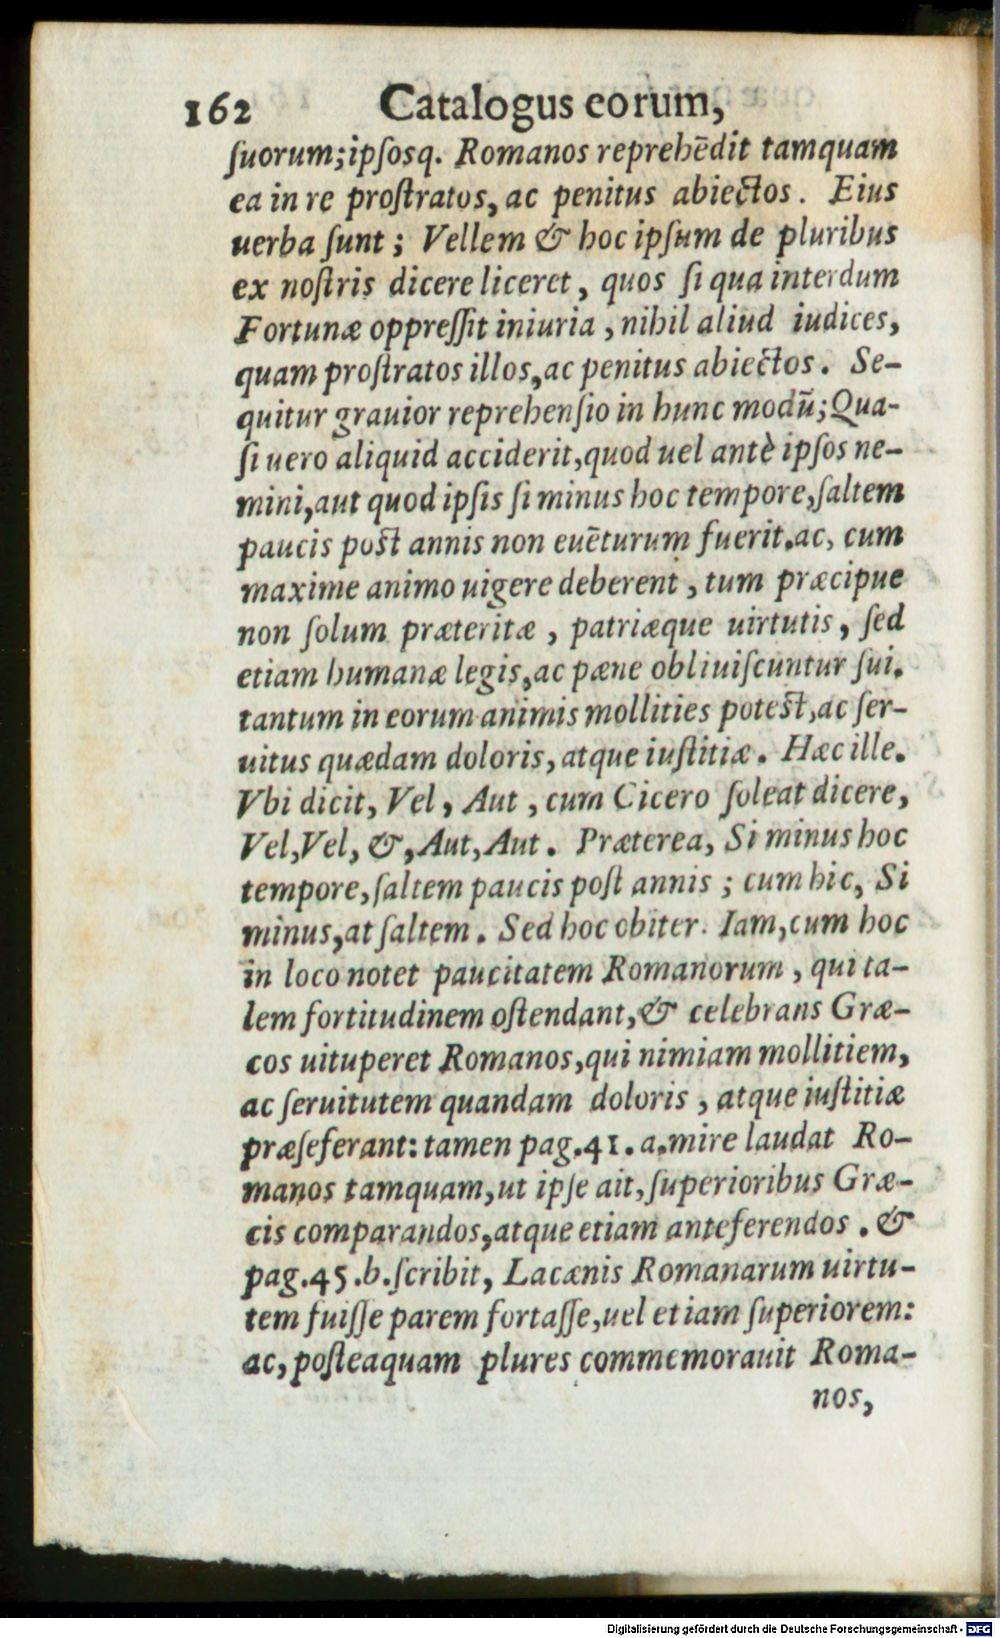 162 Catalogus eorum,
ſuorum; ipſosq. Romanos reprehēdit tamquam
ea in re proſtratos, ac penitus abiectos. Eius
uerba ſunt; Vellem & hoc ipſum de pluribus
ex noſtris dicere liceret, quos ſi qua interdum
Fortunæ oppreſſit iniuria, nihil aliud iudices,
quam proſtratos illos, ac penitus abiectos. Se-
quitur grauior reprehenſio in hunc modū; Qua-
ſi uero aliquid acciderit, quod uel antè ipſos ne-
mini, aut quod ipſis ſi minus hoc tempore, ſaltem
paucis poſt annis non euēturum fuerit. ac, cum
maxime animo uigere deberent, tum præcipue
non ſolum præteritæ, patriæque uirtutis, ſed
etiam humanæ legis, ac pæne obliuiſcuntur ſui.
tantum in eorum animis mollities poteſt, ac ſer-
uitus quædam doloris, atque iuſtitiæ. Hæc ille.
Vbi dicit, Vel, Aut, cum Cicero ſoleat dicere,
Vel, Vel, &, Aut, Aut. Præterea, Si minus hoc
tempore, ſaltem paucis poſt annis; cum hic, Si
minus, at ſaltem. Sed hoc obiter. Iam, cum hoc
in loco notet paucitatem Romanorum, qui ta-
lem fortitudinem oſtendant, & celebrans Græ-
cos uituperet Romanos, qui nimiam mollitiem,
ac ſeruitutem quandam doloris, atque iuſtitiæ
præſeferant: tamen pag. 41. a. mire laudat Ro-
manos tamquam, ut ipſe ait, ſuperioribus Græ-
cis comparandos, atque etiam anteferendos. &
pag. 45. b. ſcribit, Lacænis Romanarum uirtu-
tem fuiſſe parem fortaſſe, uel etiam ſuperiorem:
ac, poſteaquam plures commemorauit Roma-
nos,
Digitalisierung gefördert durch die Deutsche Forschungsgemeinschaft - DFG